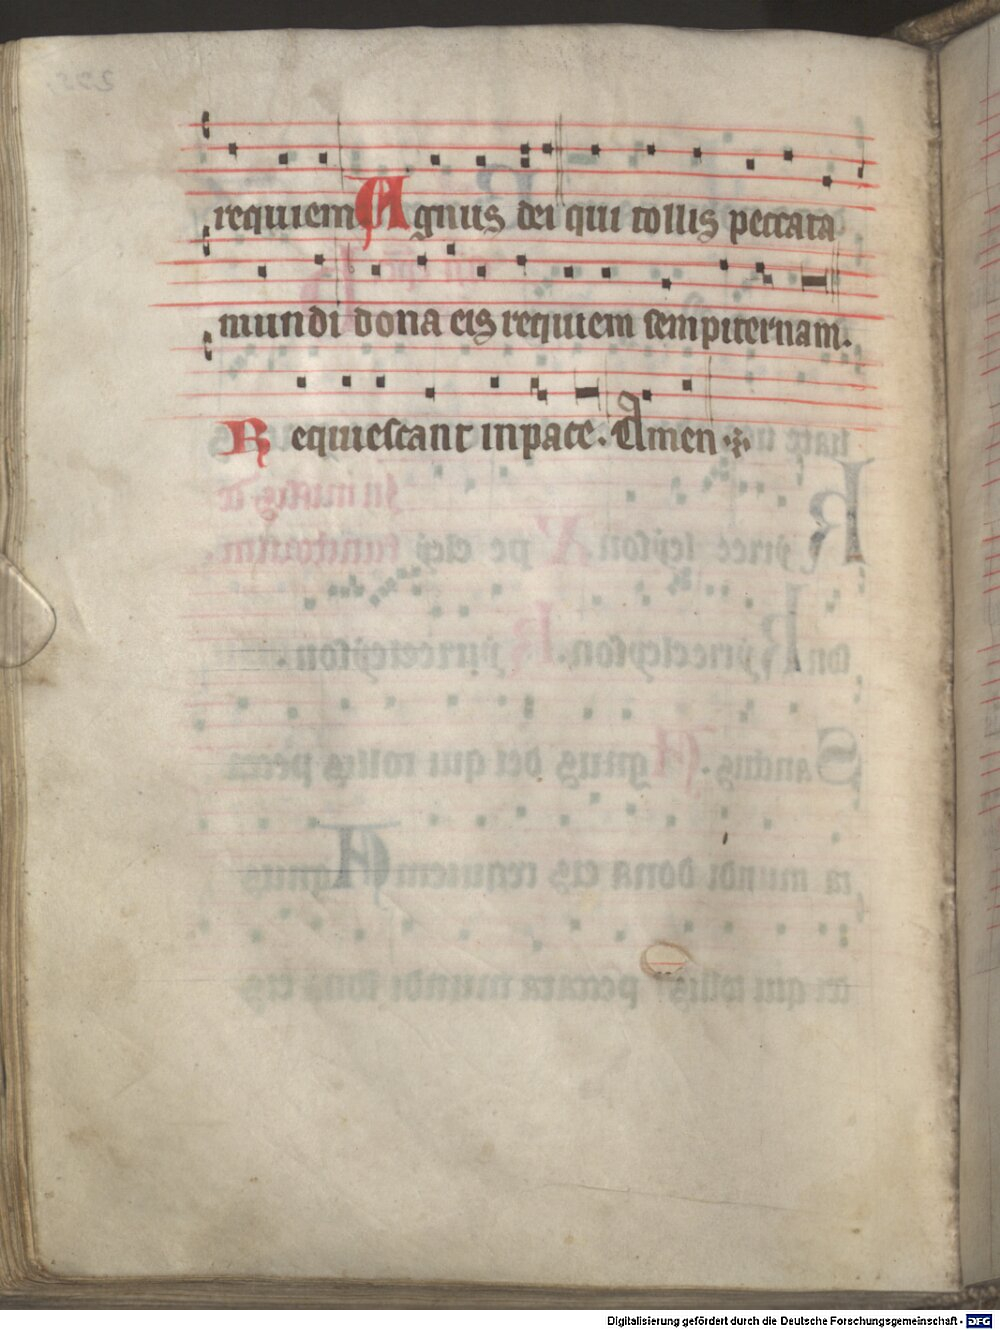 requiem Agnus dei qui tollis peccata
mundi dona eis requiem sempiternam.
Requiescant in pace. Amen
Digitalisierung gefördert durch die Deutsche Forschungsgemeinschaft - DFG